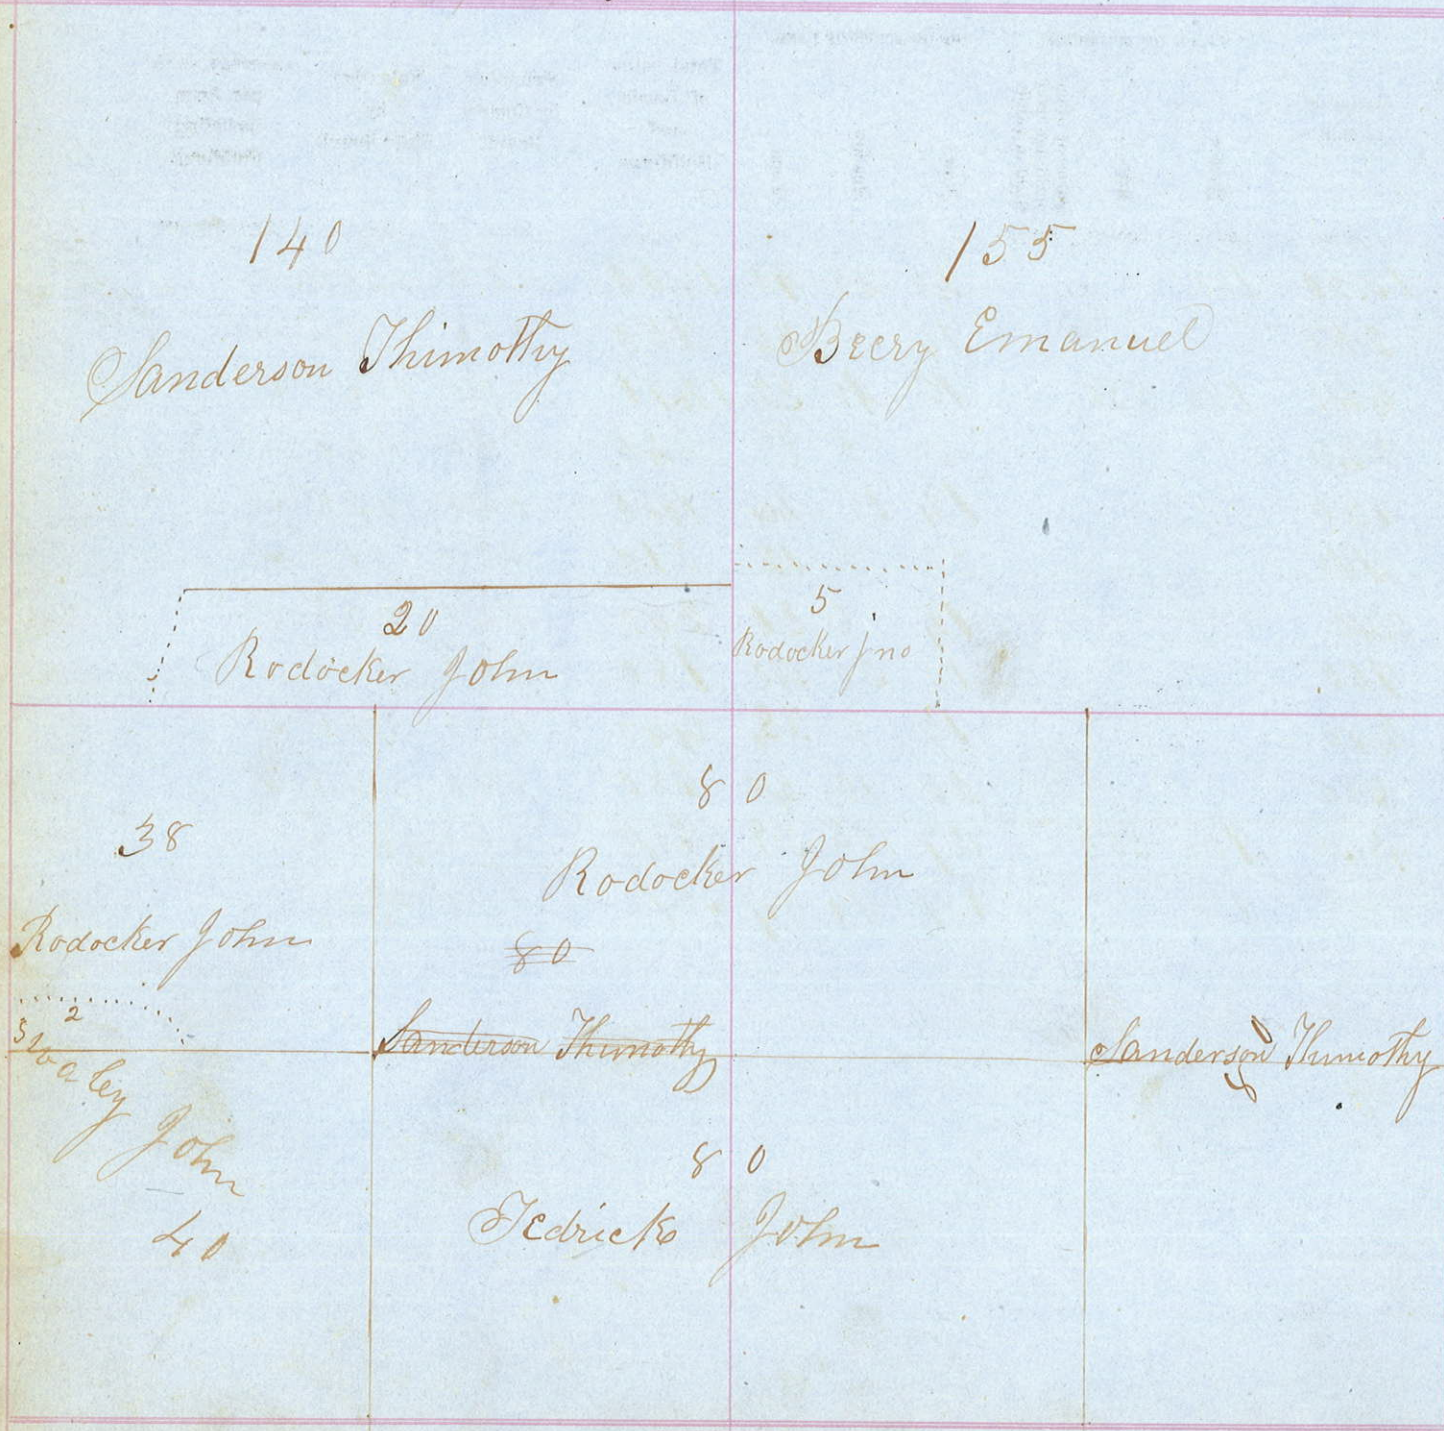 140
Sanderson Thimothy
155
Beery Emanuel
20
Rodocker John
5
Rodocker Jno
38
Rodocker John
2
80
Rodocker John
80
Sanderson Thimothy
80
Sanderson Thimothy
John
40
80
Fedrick John